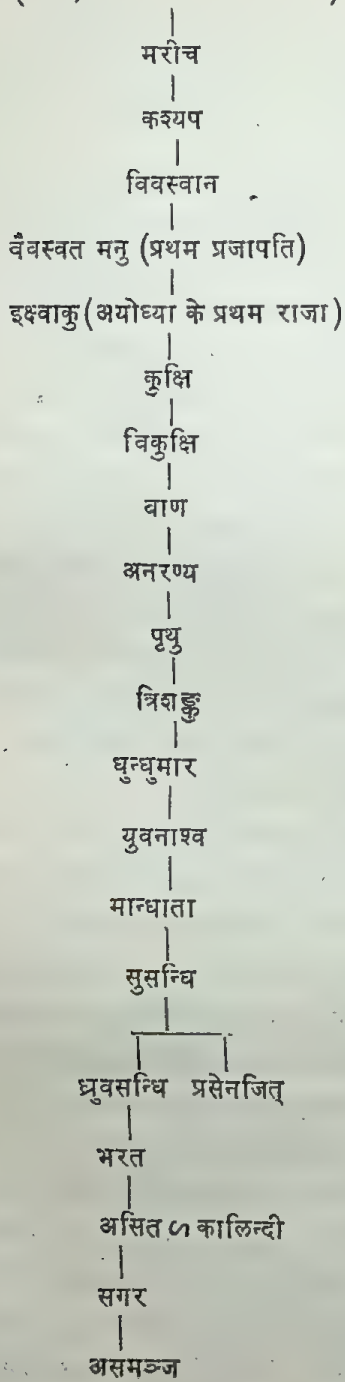 मरीच
कश्यप
विवस्वान
वैवस्वत मनु (प्रथम प्रजापति)
इक्ष्वाकु (अयोध्या के प्रथम राजा)
कुक्षि
विकुक्षि
वाण
अनरण्य
पृथु
त्रिशङ्कु
धुन्धुमार
युवनाश्व
मान्धाता
सुसन्धि
ध्रुवसन्धि प्रसेनजित्
भरत
असित ഗ कालिन्दी
सगर
असमञ्ज